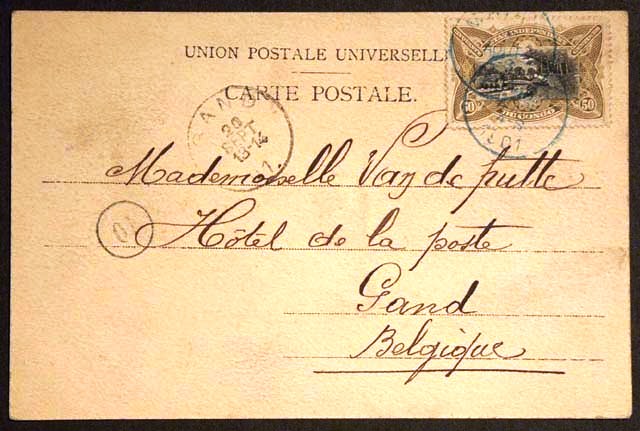 UNION POSTALE UNIVERSELLE
CARTE POSTALE.
50 50
DU CONGO
GAND
26
SEPT
13-14
Mademoiselle Van de putte
01
Hôtel de la poste
Gand
Belgique